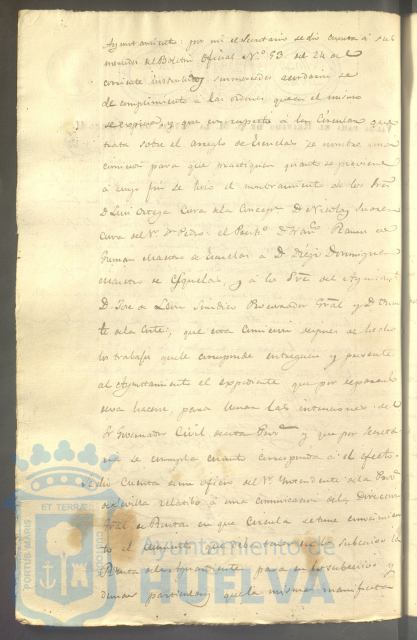 Ayuntamiento: por mi el Secretario se dio cuenta á sus
mercedes del Boletin Oficial Nº 53 del 24 del
corriente sus mercedes acordaron se
de cumplimiento á las ordenes que en el mismo
se expresan, y que con respecto á la Circular que
trata sobre el arreglo de Escuelas se nombre una
comision para que practiquen quanto se previene
á cuyo fin se hizo el nombramiento de los Sres
D. Luis Ortega Cura de la Concepn D. Nicolas Suarez
Cura del Sr. Sn Pedro, el D. Franco Ramon de
Guzman Maestro de Escuela á D. Diego Dominguez
Maestro de Escuela, y á los Sres del Ayuntamto
D. Jose de Leon Sindico Procurador Gral y D.
de la Corte, que esta Comision despues de hechos
los trabajos que le corresponde entreguen y presente
al Ayuntamiento el expediente que por separado
deva hacerse, para llenar las intenciones del
Sr Governador Civil de esta Prova y que por Secreta
ria se cumpla cuanto corresponda á el efecto.
Se dio Cuenta de un oficio del Sr Yntendente de la Prova
de Sevilla relativo á una comunicacion de la Direccion
Gral de Rentas en que Circula se tome conocimien
to en lo subcesivo la
Renta de Aguardiente para en lo subcesivo y
demas particulares que la misma manifiesta
PORTUS MARIS ET TERRAE CUSTODIA
Ayuntamiento de
HUELVA